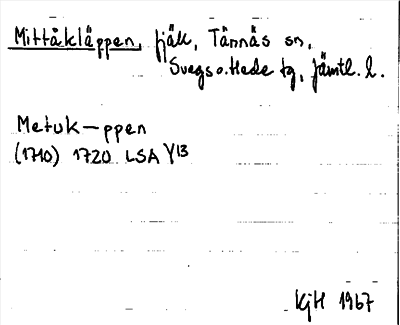 Mittåkläppen, fjäll, Tännäs sn,
Svegs o. Hede tg, Jämtl. l.
Metuk–ppen
(1710) 1720 LSA Y13
KjH 1967